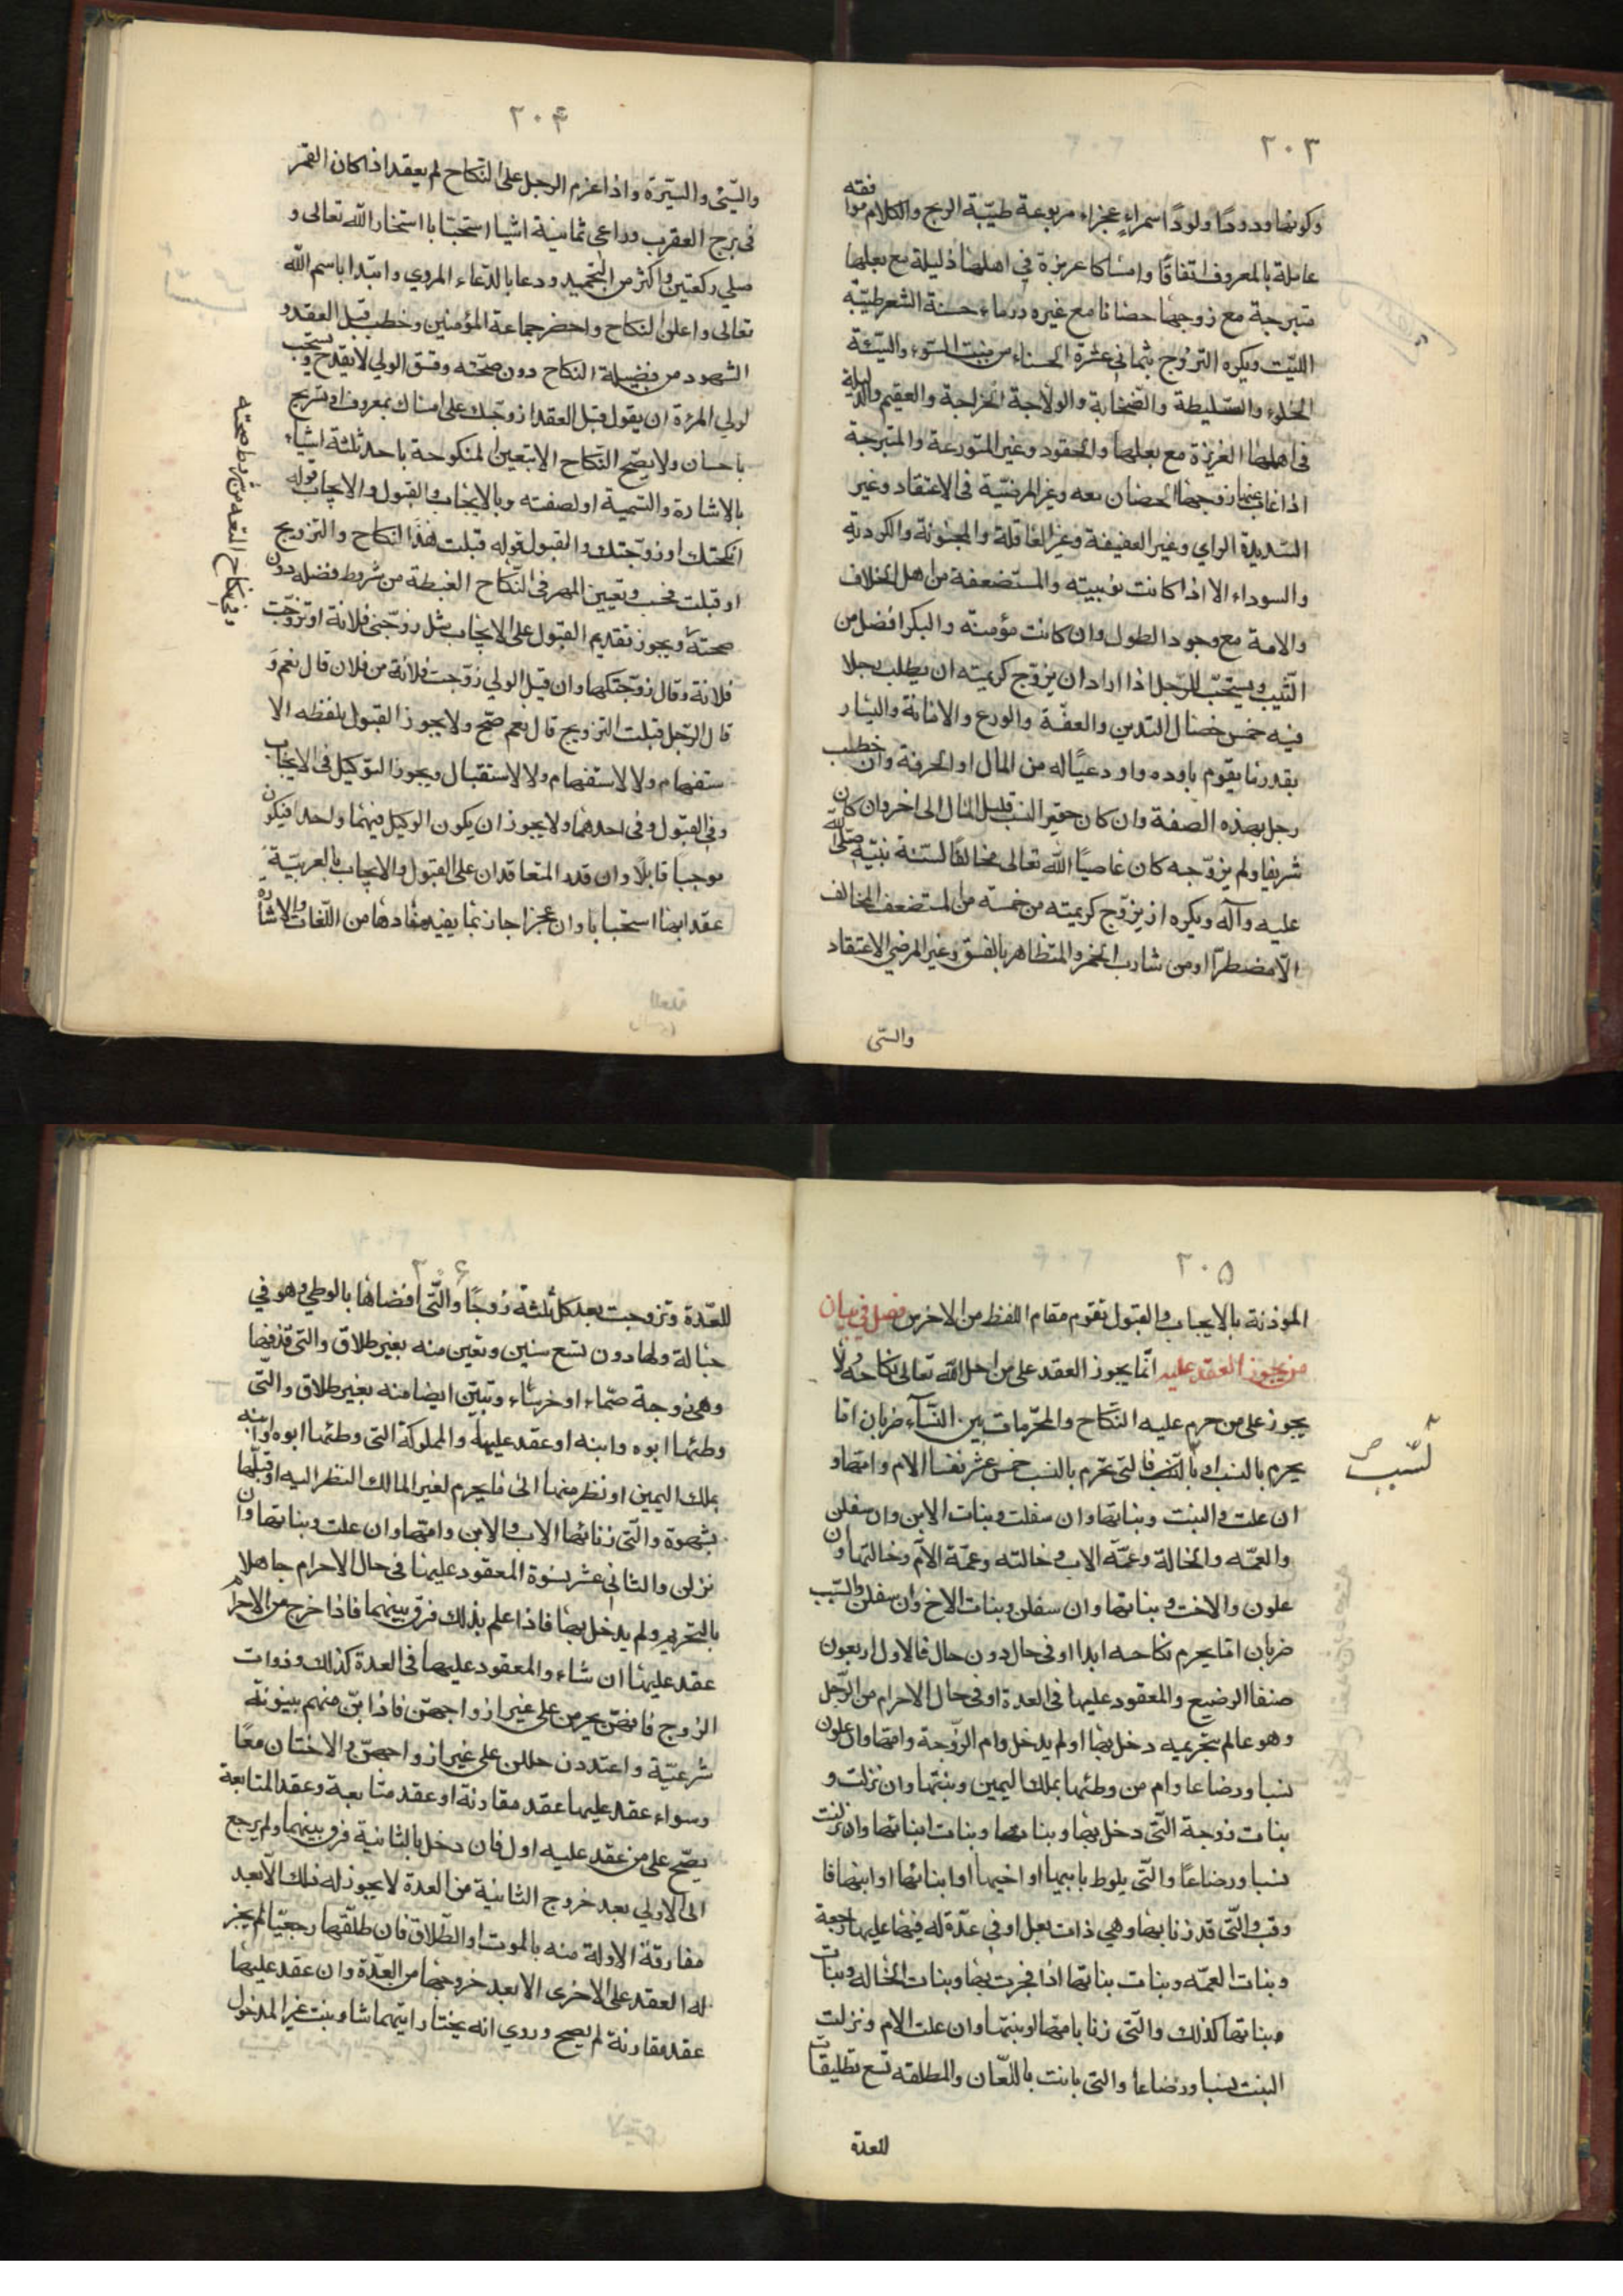 ٢٠٣
وكونها ودودًا ولودًا سمراء عجزاء مربوعة طيّبة الريح والكلام موافقه
عاملة بالمعروف انفاقًا وامساكا عزيزة في اهلها ذليلة مع بعلها
متبرجة مع زوجها حصانا مع غيره درماء حسنة الشعر طيّبة
الليّت ويكره التزوّج بثماني عشرة الحسناء من منبت السّوء والسّيّئة
الخلق والسّليطة والصّخابة والولاجة الخراجة والعقيم والذليلة
فى اهلها العزيزة مع بعلها والحقود وغير المتورعة والمتبرجة
اذا غاب عنها زوجها الحصان معه وغير المرضيّة فى الاعتقاد وغير
السّديدة الراي وغير العفيفة وغير العاقلة والمجنونة والكردية
والسوداء الا اذا كانت نوبيته والمستضعفة من اهل الخلاف
والامة مع وجود الطول وان كانت مؤمنة والبكر افضل من
الثّيب ويستحبّ للرّجل اذا اراد ان يزوّج كريمته ان يطلب رجلا
فيه خمس خصال التدين والعفّة والورع والامانة واليسار
بقدر ما يقوم باوده واود عياله من المال او الحرفة وان خطب
رجل بهذه الصفة وان كان حقير النسب قليل المال الى اخر وان كان
شريفا ولم يزوّجه كان عاصيًا الله تعالى مخالفًا لسنّة نبيّه صلى الله
عليه وآله ويكره ان يزوّج كريمته من خمسة من المستضعف المخالف
الّا مضطرّا ومن شارب الخمر والمتظاهر بالفسق وغير المرضي الاعتقاد
والسّى
٢٠۴
والسّيئ السّيرة واذا عزم الرجل على النكاح لم يعقد اذا كان القمر
فى برج العقرب وراعى ثمانية اشيا استحبابا استخار الله تعالى و
صلي ركعتين واكثر من التحميد ودعا بالدّعاء المروي وابتدا باسم الله
تعالى واعلن النكاح واحضر جماعة المؤمنين وخطب قبل العقد و
الشهود من فضيلة النكاح دون صحّته وفسق الولي لا يقدح ويستحب
لولي المرءة ان يقول قبل العقد ازوّجك على امساك بمعروف او تسريح
باحسان ولا يصّح النّكاح الا بتعين المنكوحة باحد ثلثة اشياء
بالاشارة والتسمية او لصفته وبالايجاب والقبول والايجاب قوله
انكحتك او زوّجتك والقبول قوله قبلت هذا النكاح والتزويج
او قبلت فحسب وتعيين المهر فى النّكاح الغبطة من شروط فضله دون
صحته ويجوز تقديم القبول على الايجاب مثل زوّجنى فلانة او تزوّجت
فلانة وقال زوّجتكها وان قيل الولي زوّجت فلانة من فلان قال نعم و
قال الرّجل قبلت التزويج قال نعم صّح ولا يجوز القبول بلفظه الا
ستفهام ولا لاستفهام ولا لاستقبال ويجوز التوكيل فى الايجاب
وفى القبول وفى احدهما ولا يجوز ان يكون الوكيل فيهما واحدا فيكون
موجبا قابلاً وان قدر المتعاقدان على القبول والايجاب بالعربيّة
عقد ابها استحبابا وان عجزا جاز بما يفيد مفادها من اللّغات والاشارة
وفى نكاح المتعه من شرط صحته
٢٠۵
الموذنة بالايجاب والقبول تقوم مقام اللفظ من الاخرس فصل فى بيان
من يجوز العقد عليه انّما يجوز العقد على من احل الله تعالى نكاحه ولا
يجوز على من حرم عليه النّكاح والمحّرمات بين النّسآء ضربان اما
يحرم بالنسب او بالسّبب فالتى تحرم بالنسب خمس عشر نفسا الام وامها و
ان علت والبنت وبناتها وان سفلت وبنات الابن وان سفلن
والعمّه والخالة وعمّة الاب وخالته وعمّة الام وخالتها وان
علون والاخت وبناتها وان سفلن وبنات الاخ وان سفلن والسّبب
ضربان امّا يحرم نكاحه ابدا او فى حال دون حال فالاول اربعون
صنفا الرضيع والمعقود عليها فى العدة او فى حال الاحرام من الرّجل
وهو عالم بتحريمه دخل بها او لم يدخل وام الزّوجة وامها وان علون
نسبا ورضاعا وام من وطئها بملك اليمين وبنتها وان نزلت و
بنات زوجة الّتى دخل بها وبناتها وبنات ابنائها وان نزلت
نسبا ورضاعًا والّتى يلوط بابيها او اخيها او ابنائها او ابنها فا
وقب والّتى قد زنا بها وهي ذات بعل او فى عدّة له فيها عليها رجعة
وبنات العمّه وبنات بناتها اذا فجرت بها وبنات الخالة وبنات
وبناتها كذلك والّتى زنا بامها او بنتها وان علت الام ونزلت
البنت نسبا ورضاعا والتى بانت باللّعان والمطلقه تسع تطليقات
للعدة
لسّبب صح
٢٠۶
للعّدة وتزوجت بعد كل ثلثة زوجًا والّتى افضاها بالوطي وهو في
حباله ولها دون تسع سنين وتبين منه بغير طلاق والتى قذفها
وهى زوجة صّماء او خرساء وتبيّن ايضا منه بغير طلاق والّتى
وطئها ابوه وابنه او عقد عليها والمملوكة التى وطئها ابوه وابنه
بملك اليمين او نظر منها الى ما يحرم لغير المالك النظر اليه او قبلّها
بشهوة والّتى زنا بها الاب والابن وامها وان علت وبناتها وان
نزلن والثانى عشر نسوة المعقود عليها فى حال الاحرام جاهلا
بالتحريم ولم يدخل بها فاذا علم بذلك فرق بينهما فاذا خرج من الاحرام
عقد عليها ان شاء والمعقود عليها فى العدة كذلك وذوات
الزوج فانهنّ يحرمن على غير ازواجهنّ فاذا بنّ منهم بينونة
شرعيّة واعتددن حللن على غير ازواجهنّ والاختان معًا
وسواء عقد عليها عقد مقارنة او عقد متابعة وعقد المتابعة
يصّح على من عقد عليه اول فان دخل بالثانية فرق بينهما ولم يرجع
الى الاولي بعد خروج الثانية من العدة لا يجوز له ذلك الّا بعد
مفارقة الاولة منه بالموت او الطّلاق فان طلّقها رجعيّا لم يجز
له العقد على الاخرى الا بعد خروجها من العدّة وان عقد عليها
عقد مقارنة لم يصح وروي انه يختار ايّهما شا وبنت غير المدخول